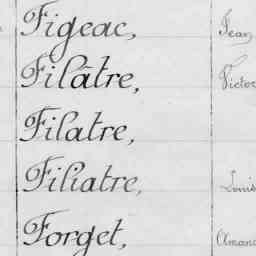 Figeac, Jean
Filâtre, Victor
Filatre,
Filiatre, Louis
Forget, Amand